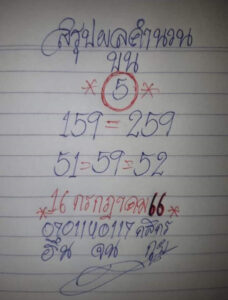 สรุปผลคำนวน
บน
* 5 *
159 = 259
51=59=52
*16 กรกฎาคม 66*
0701140117